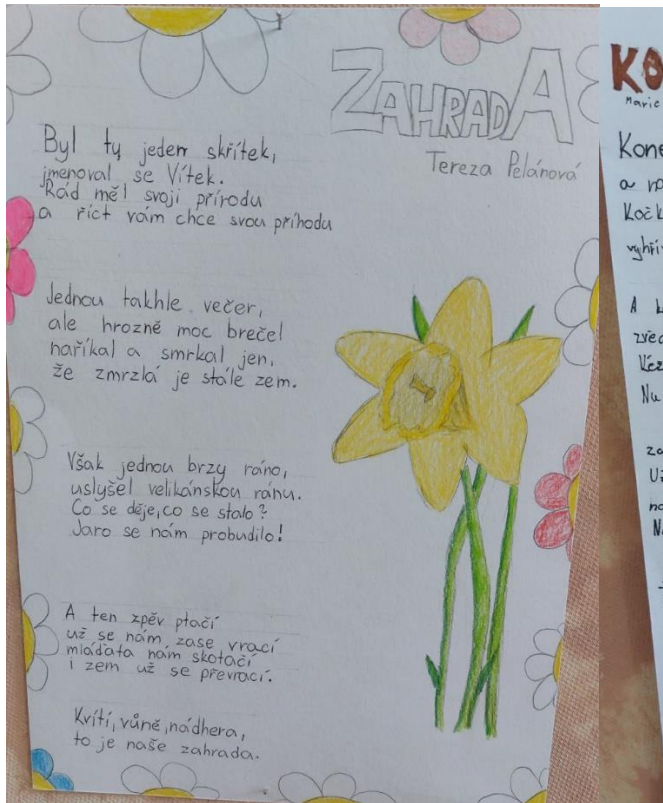 ZAHRADA
Tereza Pelánová
Byl tu jeden skřítek,
jmenoval se Vítek.
Rád měl svoji přírodu
a říct vám chce svou příhodu
Jednou takhle večer,
ale hrozně moc brečel
naříkal a smrkal jen,
že zmrzlá je stále zem.
Však jednou brzy ráno,
uslyšel velikánskou ránu.
Co se děje, co se stalo?
Jaro se nám probudilo!
A ten zpěv ptačí
už se nám zase vrací
mláďata nám skotačí
i zem už se převrací.
Kvítí, vůně, nádhera,
to je naše zahrada.
KO
Marie
Kone
a
Kočk
vyhří
A
zvěd
Nu